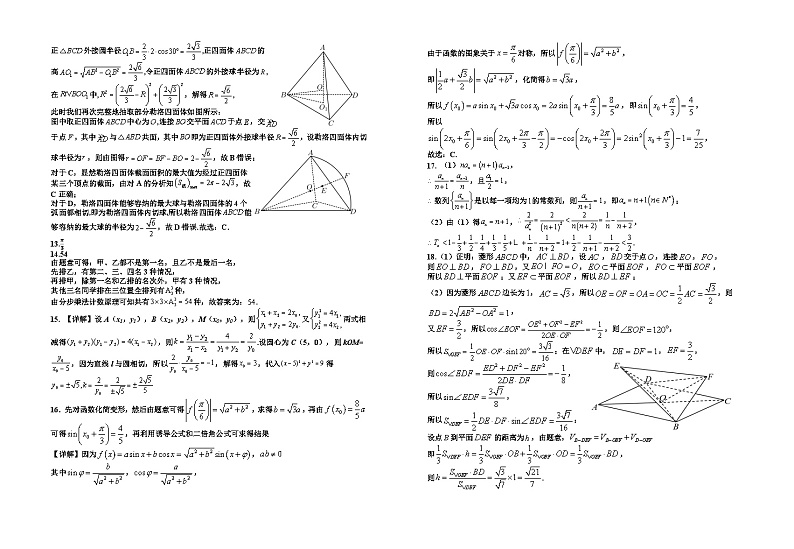 正△BCD外接圆半径O₁B=2/3·2·cos30°=2√3/3,正四面体ABCD的
高AO₁=√(AB²-O₁B²)=2√6/3,令正四面体ABCD的外接球半径为R,
在Rt△BOO₁中,R²=(2√6/3-R)²+(2√3/3)²,解得R=√6/2,
此时我们再次完整地抽取部分勒洛四面体如图所示:
图中取正四面体ABCD中心为O,连接BO交平面ACD于点E,交
于点F,其中 与△ABD共面,其中BO即为正四面体外接球半径R=√6/2,设勒洛四面体内切
球半径为r,则由图得r=OF=BF-BO=2-√6/2,故B错误;
对于C,显然勒洛四面体截面面积的最大值为经过正四面体
某三个顶点的截面,由对A的分析知 =2π-2√3,故
C正确;
对于D,勒洛四面体能够容纳的最大球与勒洛四面体的4个
弧面都相切,即为勒洛四面体内切球,所以勒洛四面体ABCD能
够容纳的最大球的半径为2-√6/2,故D错误.故选:C.
A
B
C
D
O
O₁
A
B
C
D
O
E
F
13.π/3
14.54
由题意可得,甲、乙都不是第一名,且乙不是最后一名,
先排乙,有第二、三、四名3种情况,
再排甲,除第一名和乙排的名次外,甲有3种情况,
其他三名同学排在三位置全排列有A₃³种,
由分步乘法计数原理可知共有3×3×A₃³=54种,故答案为:54.
15. 【详解】设A(x₁,y₁),B(x₂,y₂),M(x₀,y₀),则{x₁+x₂=2x₀, y₁+y₂=2y₀.又{y₁²=4x₁, y₂²=4x₂.两式相
减得(y₁+y₂)(y₁-y₂)=4(x₁-x₂),则k=(y₁-y₂)/(x₁-x₂)=4/(y₁+y₂)=2/y₀.设圆心为C(5,0),则kCM=
y₀/(x₀-5),因为直线l与圆相切,所以2/y₀·y₀/(x₀-5)=-1,解得x₀=3,代入(x-5)²+y²=9得
y₀=±√5,k=2/y₀=2/±√5=±2√5/5
16. 先对函数化简变形,然后由题意可得|f(π/6)|=√(a²+b²),求得b=√3a,再由f(x₀)=8/5a
可得sin(x₀+π/3)=4/5,再利用诱导公式和二倍角公式可求得结果
【详解】因为f(x)=asinx+bcosx=√(a²+b²)sin(x+φ),ab≠0
其中sinφ=b/√(a²+b²),cosφ=a/√(a²+b²),
由于函数的图象关于x=π/6对称,所以|f(π/6)|=√(a²+b²),
即|1/2a+√3/2b|=√(a²+b²),化简得b=√3a,
所以f(x₀)=asinx₀+√3acosx₀=2asin(x₀+π/3)=8/5a,即sin(x₀+π/3)=4/5,
所以
sin(2x₀+π/6)=sin(2x₀+2π/3-π/2)=-cos(2x₀+2π/3)=2sin²(x₀+π/3)-1=7/25,
故选:C.
17. (1)naₙ=(n+1)aₙ₋₁,
∴aₙ/(n+1)=aₙ₋₁/n,且a₁/2=1,
∴数列{aₙ/(n+1)}是以每一项均为1的常数列,则aₙ/(n+1)=1,即aₙ=n+1(n∈N*);
(2)由(1)得aₙ=n+1,∴2/aₙ²=2/(n+1)²<2/n(n+2)=1/n-1/(n+2),
∴Tₙ<1-1/3+1/2-1/4+1/3-1/5+L+1/n-1/(n+2)=1+1/2-1/(n+1)-1/(n+2)<3/2.
18. (1)证明:菱形ABCD中,AC⊥BD,设AC,BD交于点O,连接EO,FO,
则EO⊥BD,FO⊥BD,又EO∩FO=O,EO⊂平面EOF,FO⊂平面EOF,
所以BD⊥平面EOF;又EF⊂平面EOF,所以BD⊥EF;
(2)因为菱形ABCD边长为1,AC=√3,所以OE=OF=OA=OC=1/2AC=√3/2,则
BD=2√(AB²-OA²)=1,
又EF=3/2,所以cos∠EOF=(OE²+OF²-EF²)/(2OE·OF)=-1/2,则∠EOF=120°,
所以S△OEF=1/2OE·OF·sin120°=3√3/16;在△DEF中,DE=DF=1,EF=3/2,
则cos∠EDF=(ED²+DF²-EF²)/(2DE·DF)=-1/8,
所以sin∠EDF=3√7/8,
所以S△DEF=1/2DE·DF·sin∠EDF=3√7/16;
设点B到平面DEF的距离为h,由题意,V_B-DEF=V_B-OEF+V_D-OEF
即1/3S△DEF·h=1/3S△OEF·OB+1/3S△OEF·OD=1/3S△OEF·BD,
则h=S△OEF·BD/S△DEF=√3/√7×1=√21/7.
E
D
F
O
A
B
C